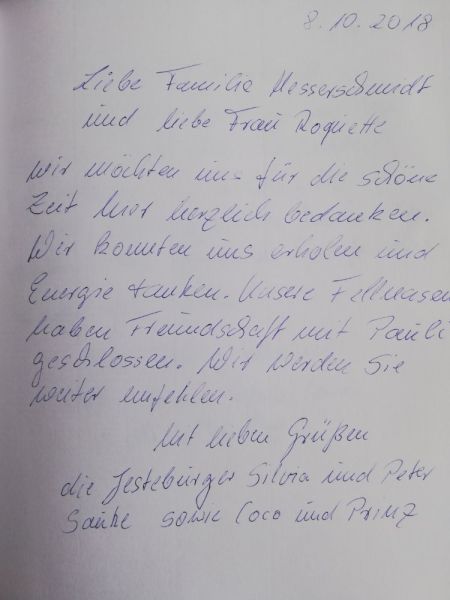 8.10.2018
Liebe Familie Messerschmidt
und liebe Frau Roquette
wir möchten uns für die schöne
Zeit hier herzlich bedanken.
Wir konnten uns erholen und
Energie tanken. Unsere Fellnasen
haben Freundschaft mit Pauli
geschlossen. Wir werden Sie
weiter empfehlen.
Mit lieben Grüßen
die Jesteburger Silvia und Peter
sowie Coco und Prinz